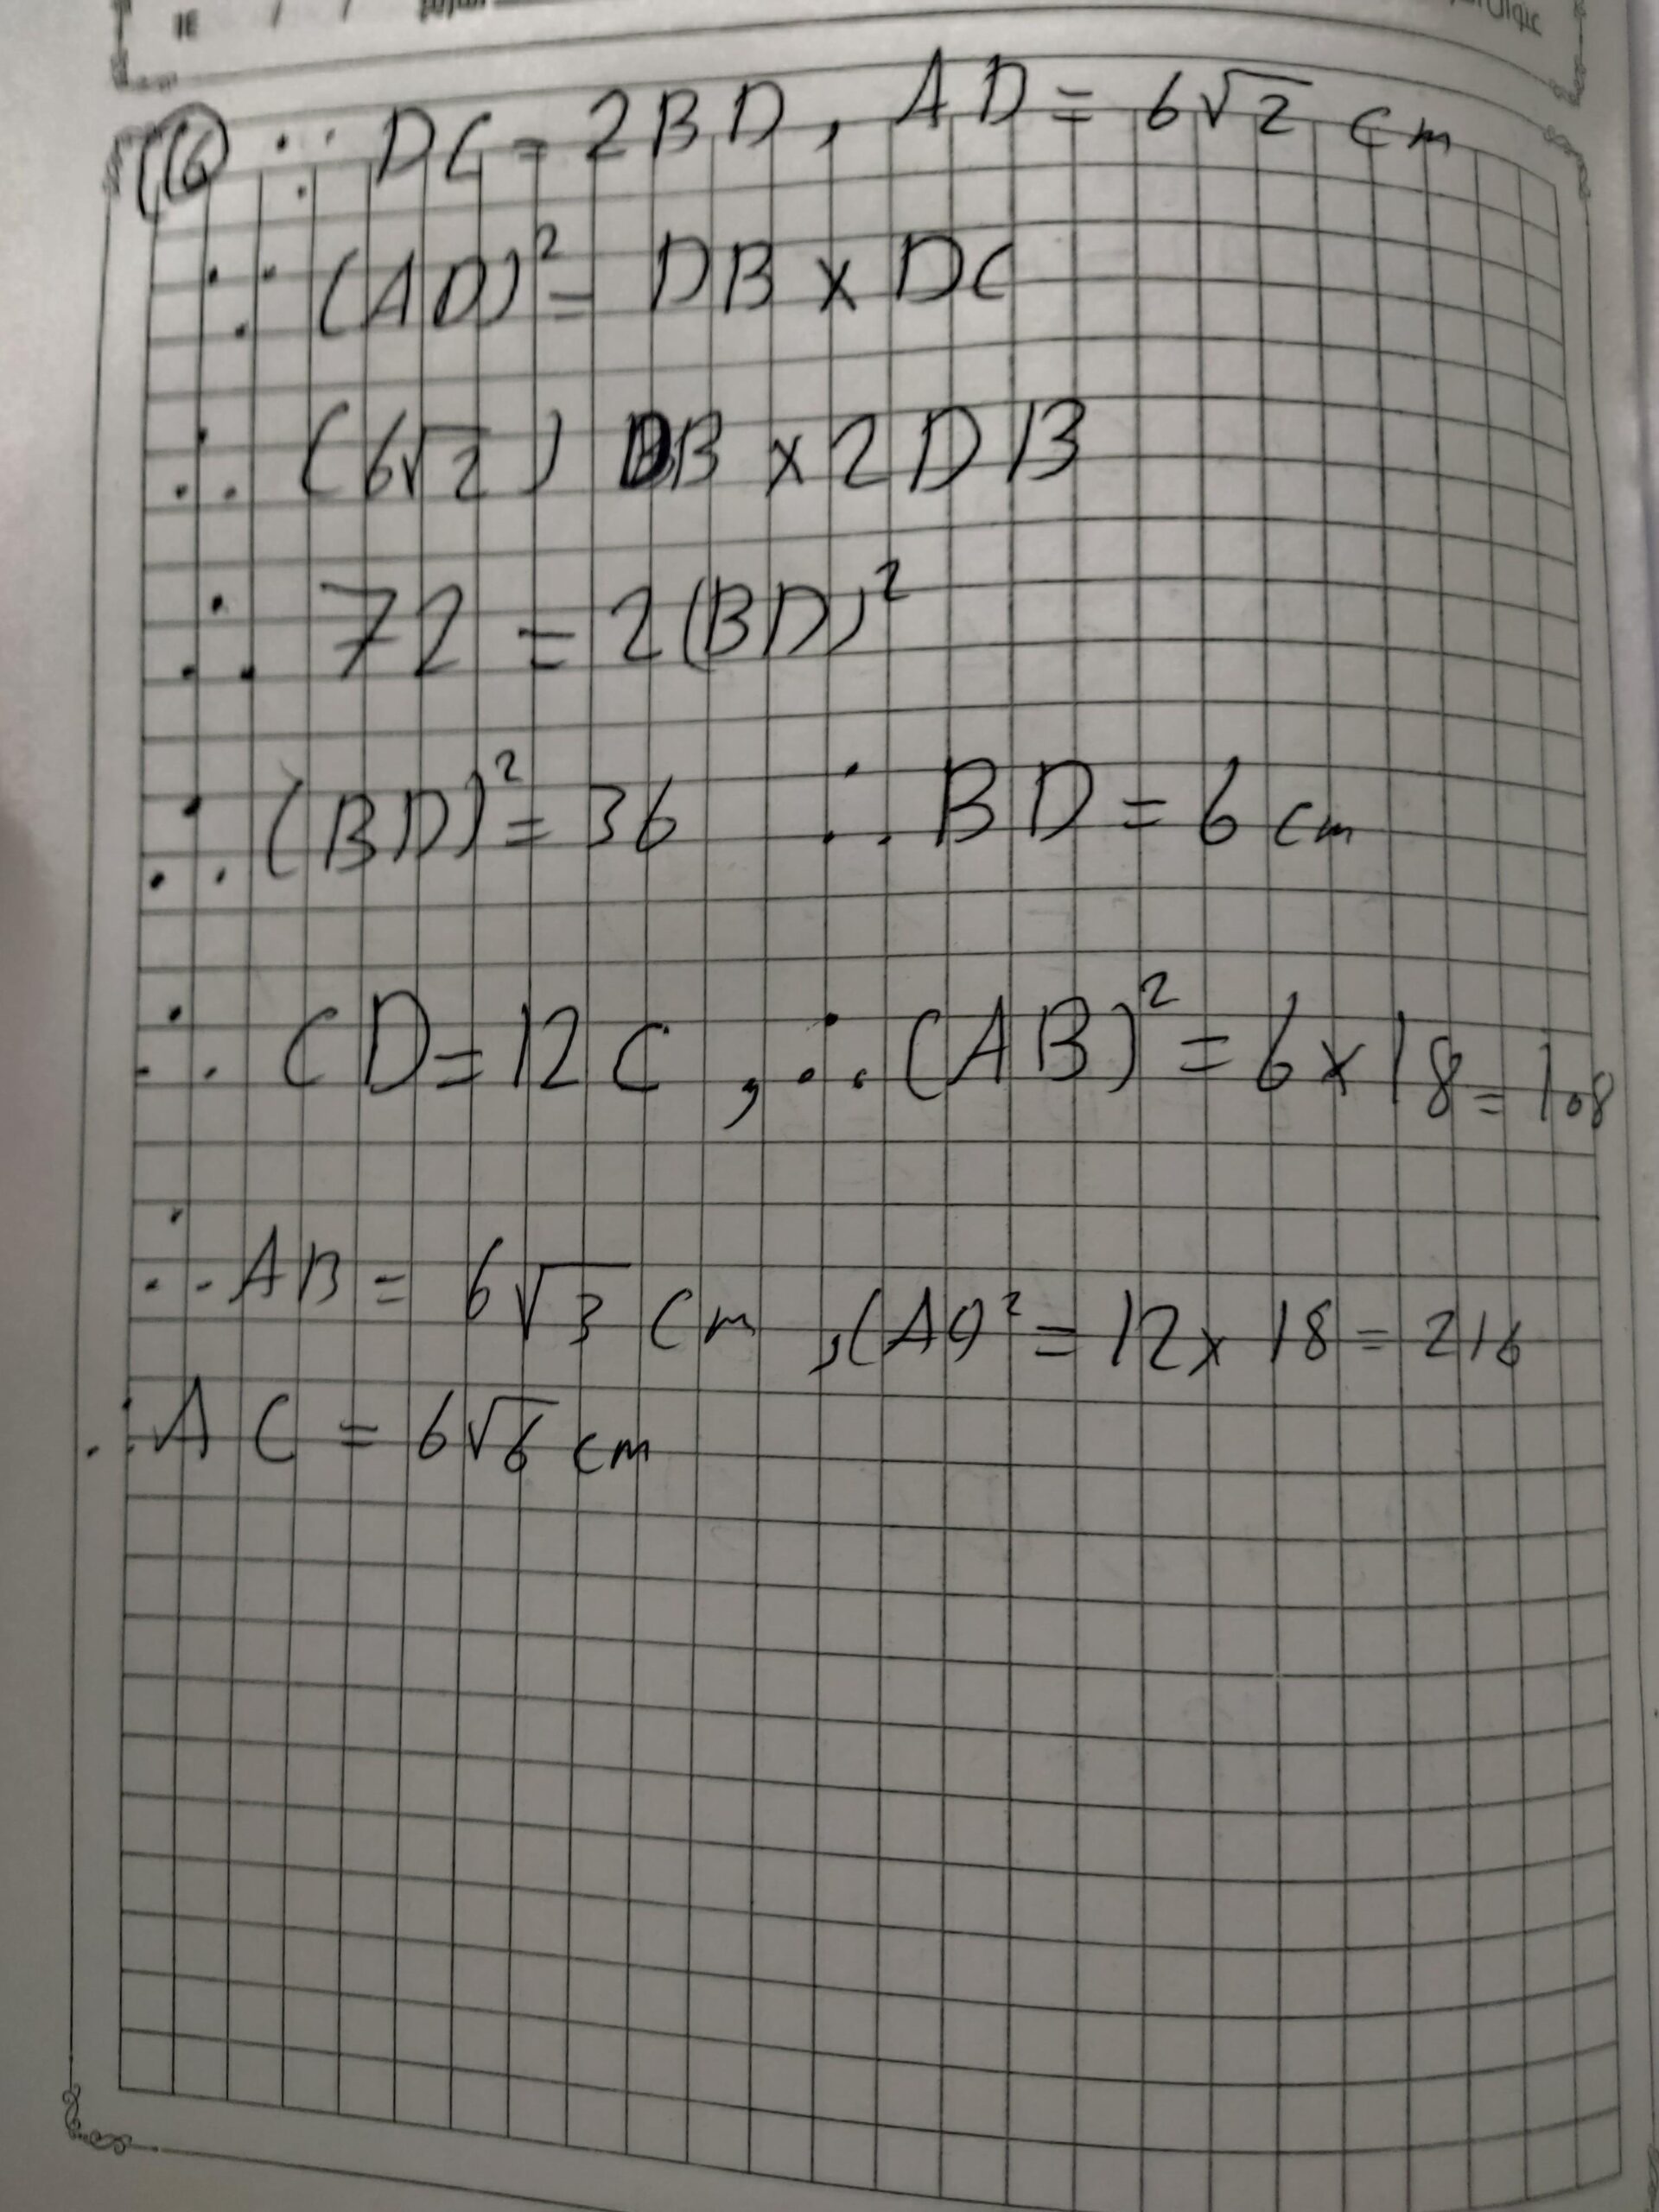 (16) ∵ DC = 2BD , AD = 6√2 cm
∵ (AD)² = DB × DC
∴ (6√2) DB × 2DB
∴ 72 = 2(BD)²
∴ (BD)² = 36 ∴ BD = 6 cm
∴ CD = 12 C , ∴ (AB)² = 6 × 18 = 108
∴ AB = 6√3 cm , (AC)² = 12 × 18 = 216
∴ AC = 6√6 cm